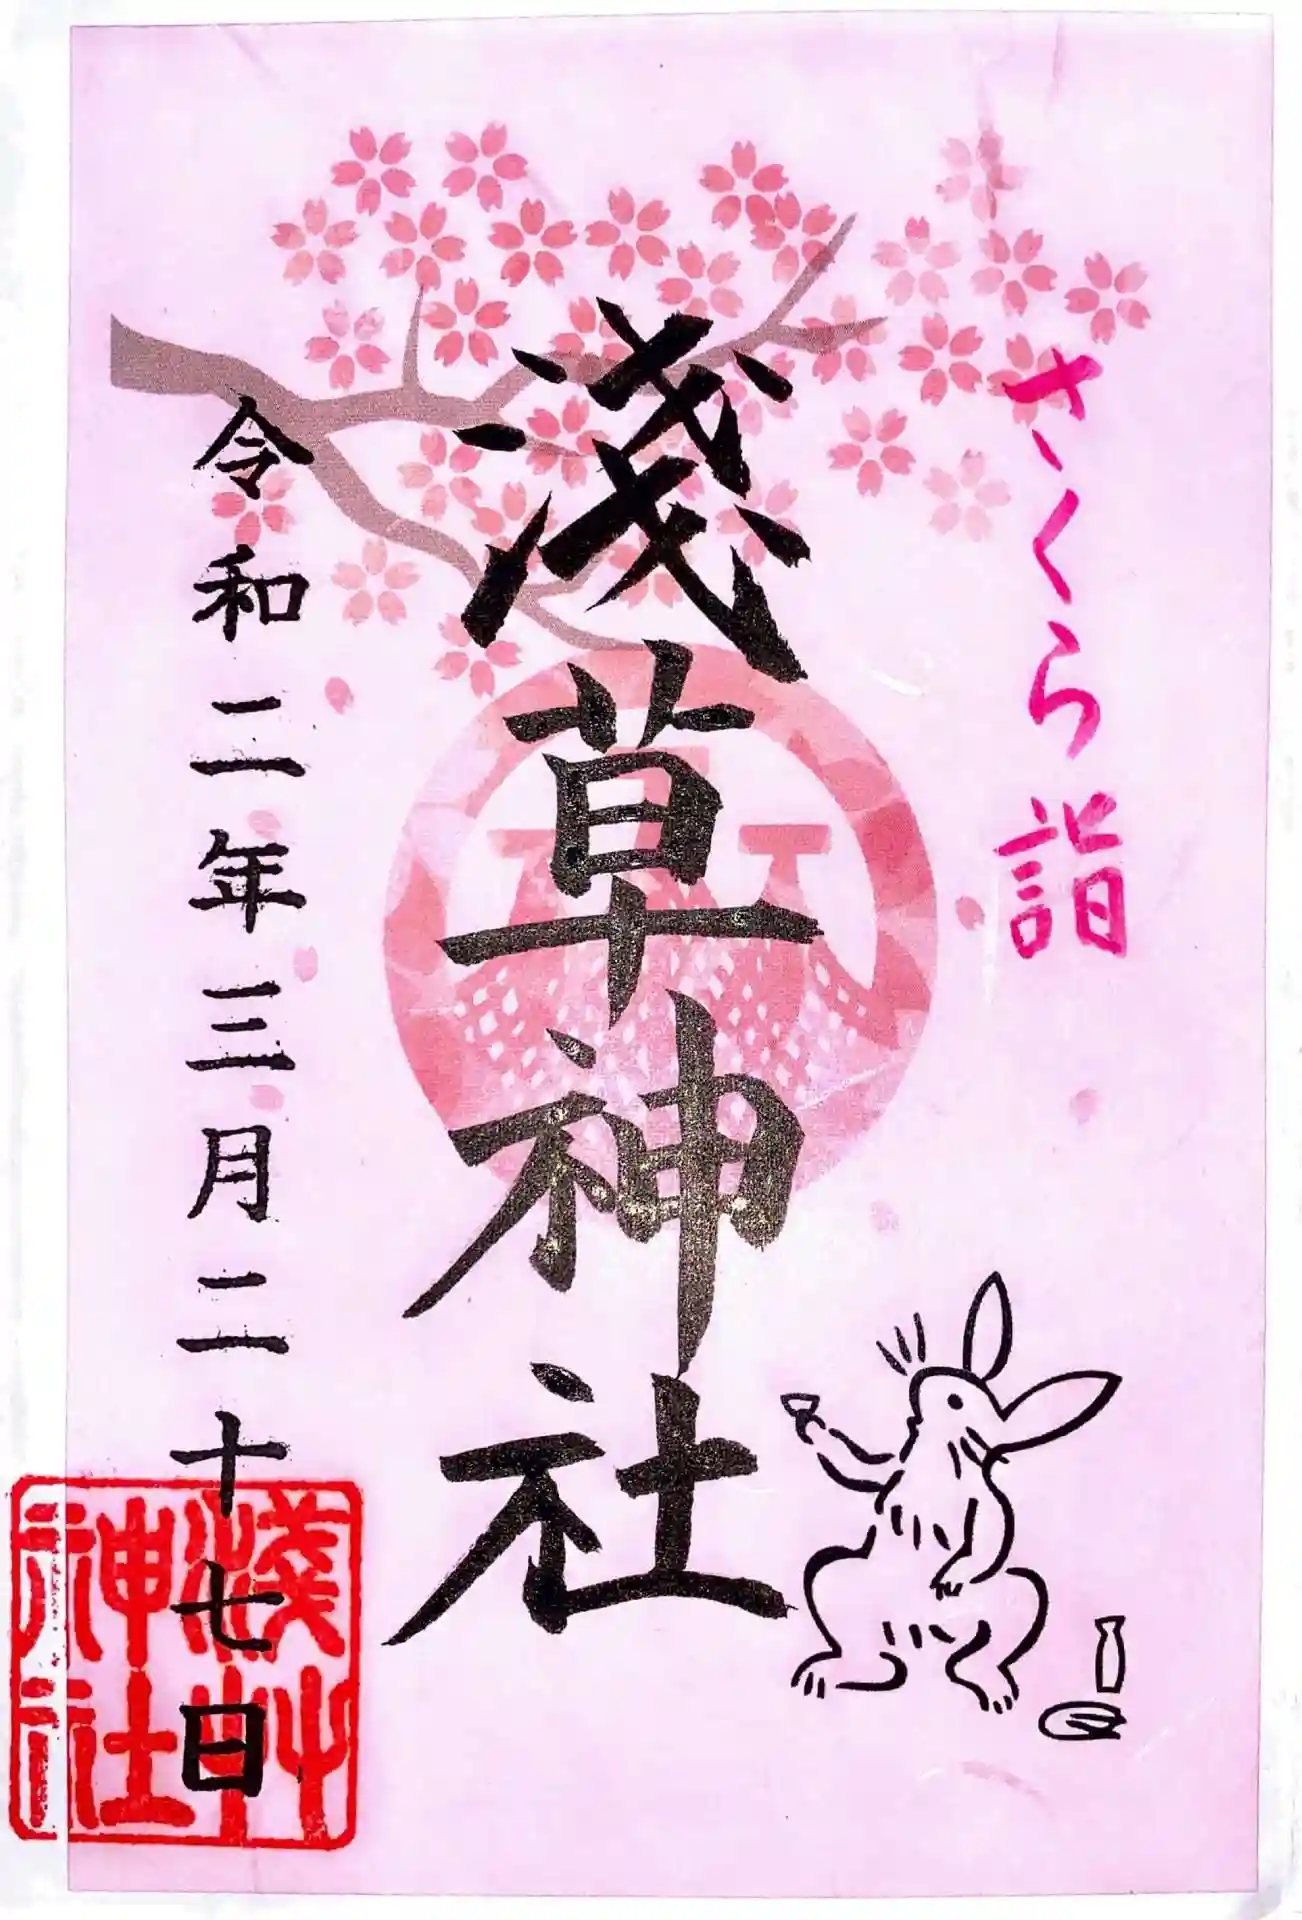 さくら詣
浅草神社
令和二年三月二十七日
浅草
神社